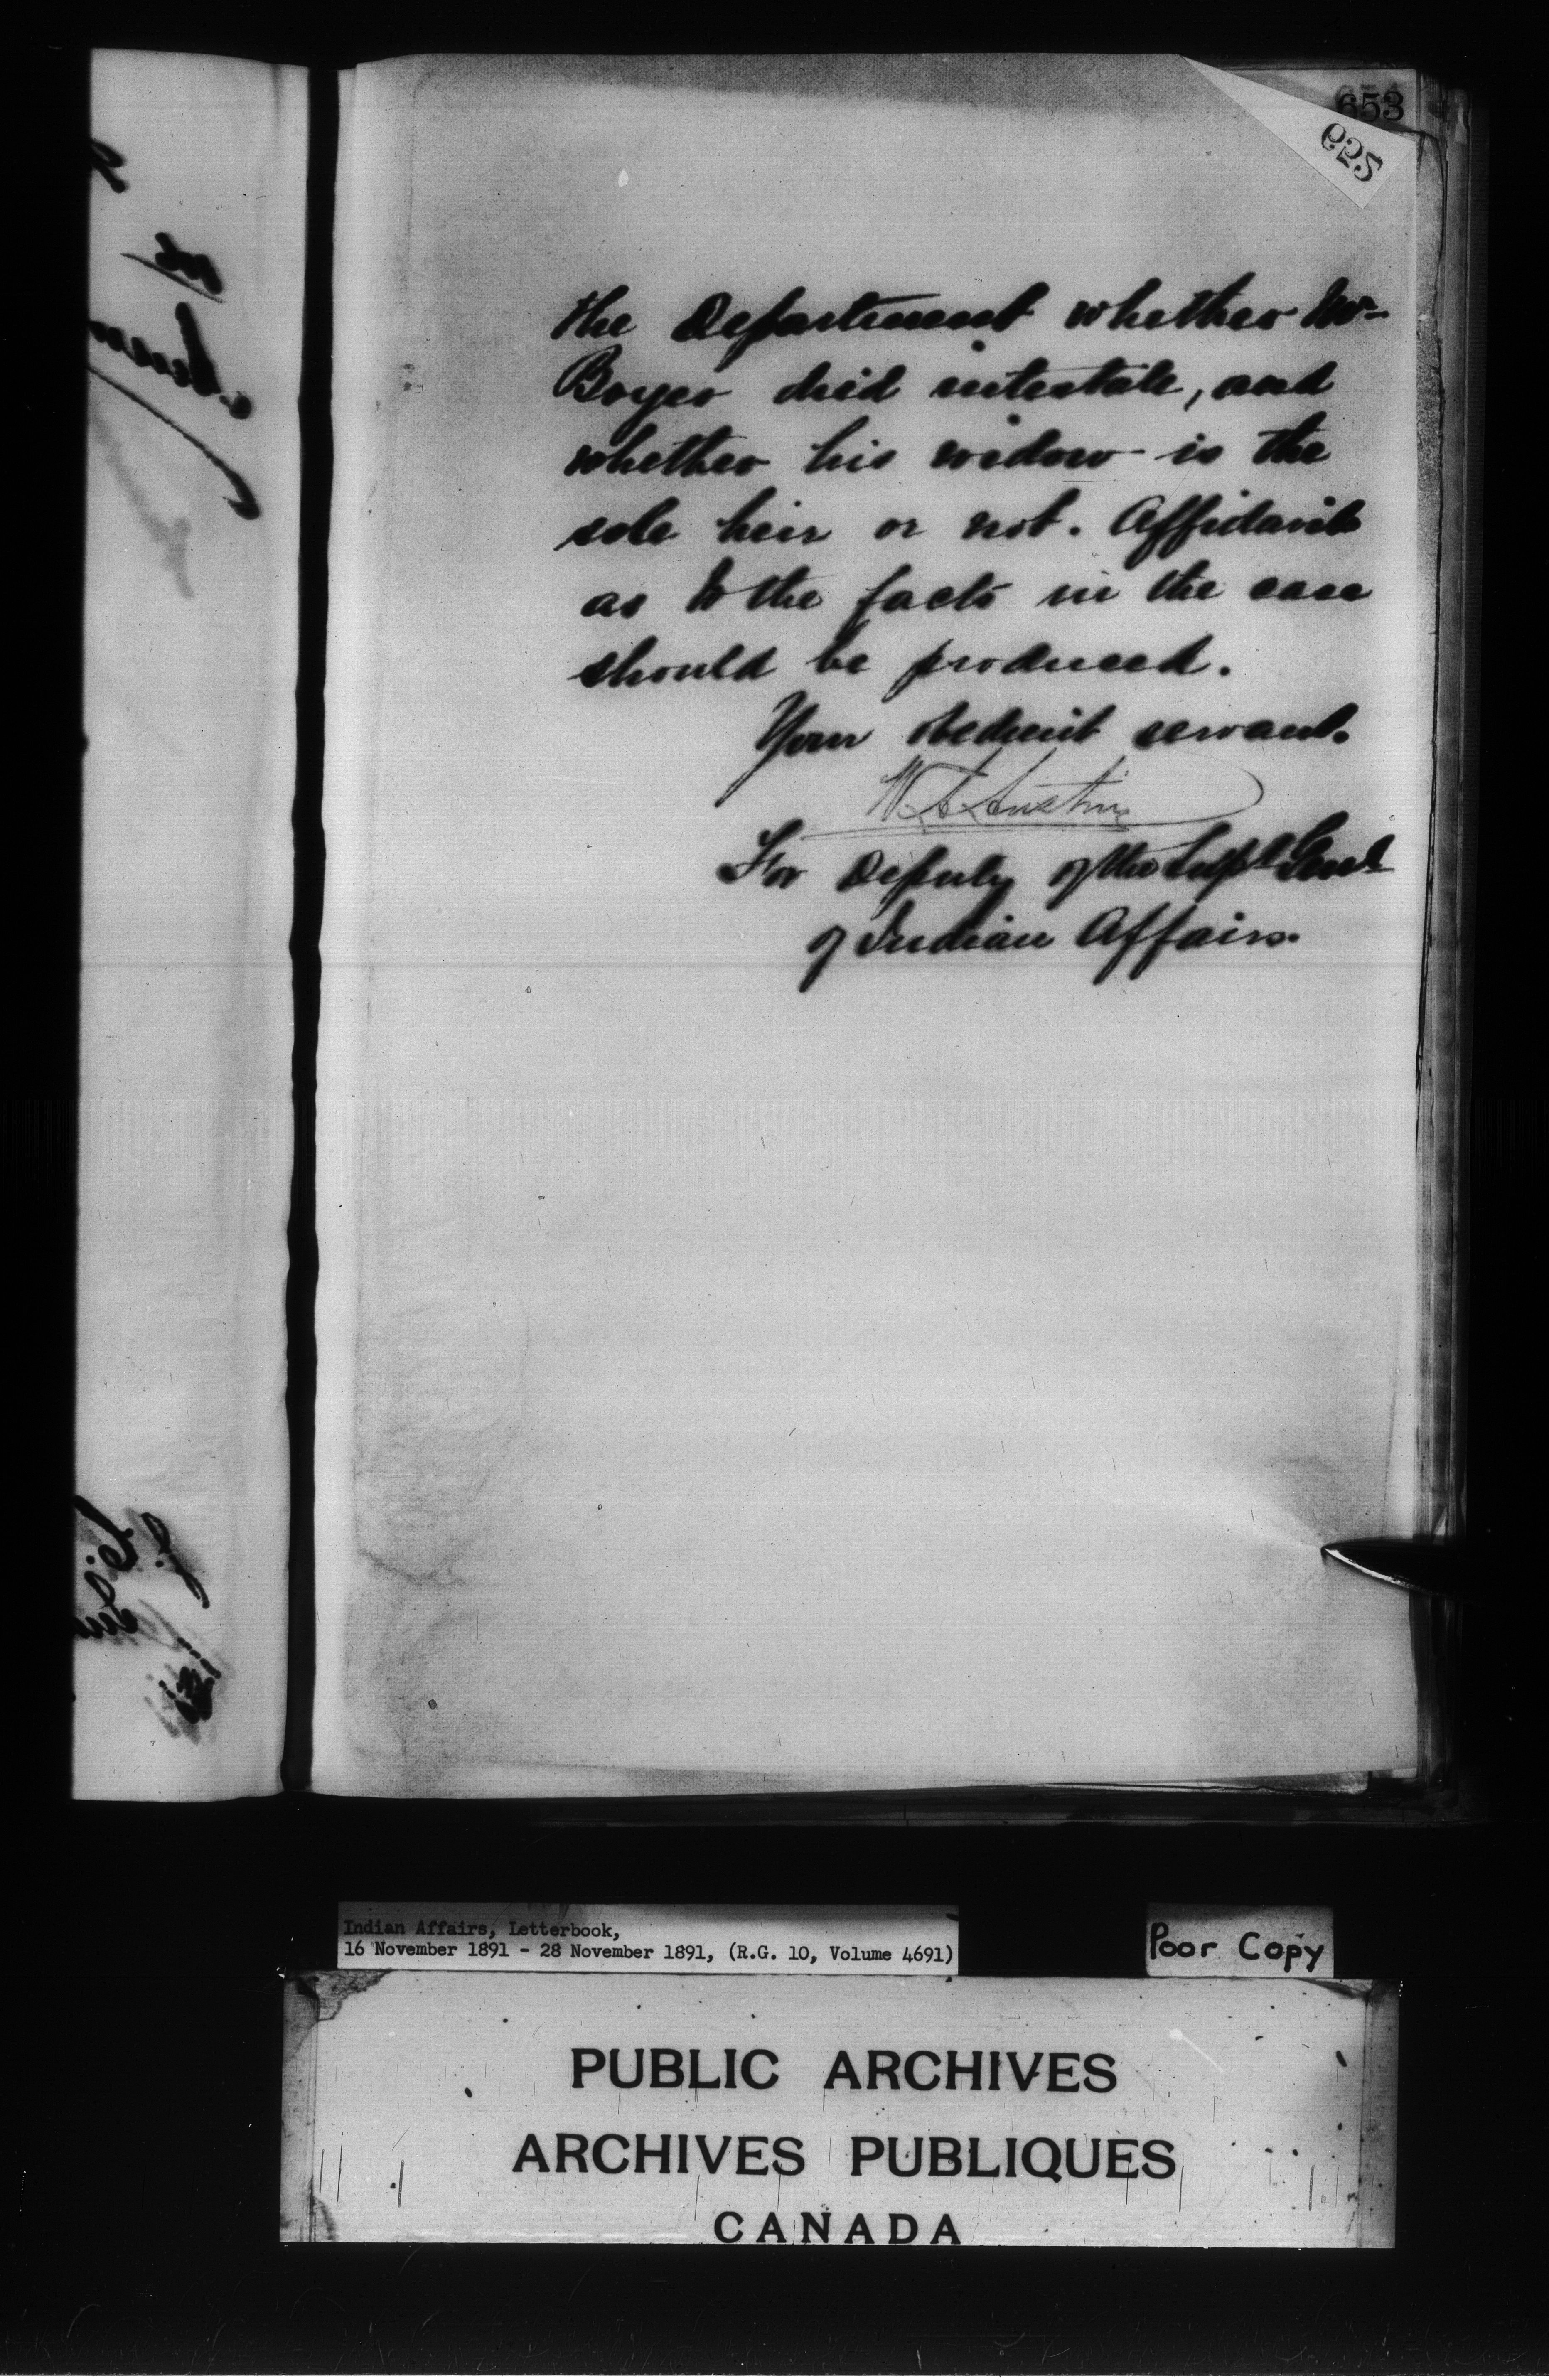 653
the Department whether Mr
Boyer died intestate, and
whether his widow is the
sole heir or not. Affidavits
as to the facts in the case
should be produced.
Your obedient servant.
W. A. Austin
For Deputy of the Supt Genl
of Indian Affairs.
Indian Affairs, Letterbook,
16 November 1891 - 28 November 1891, (R.G. 10, Volume 4691)
Poor Copy
PUBLIC ARCHIVES
ARCHIVES PUBLIQUES
CANADA